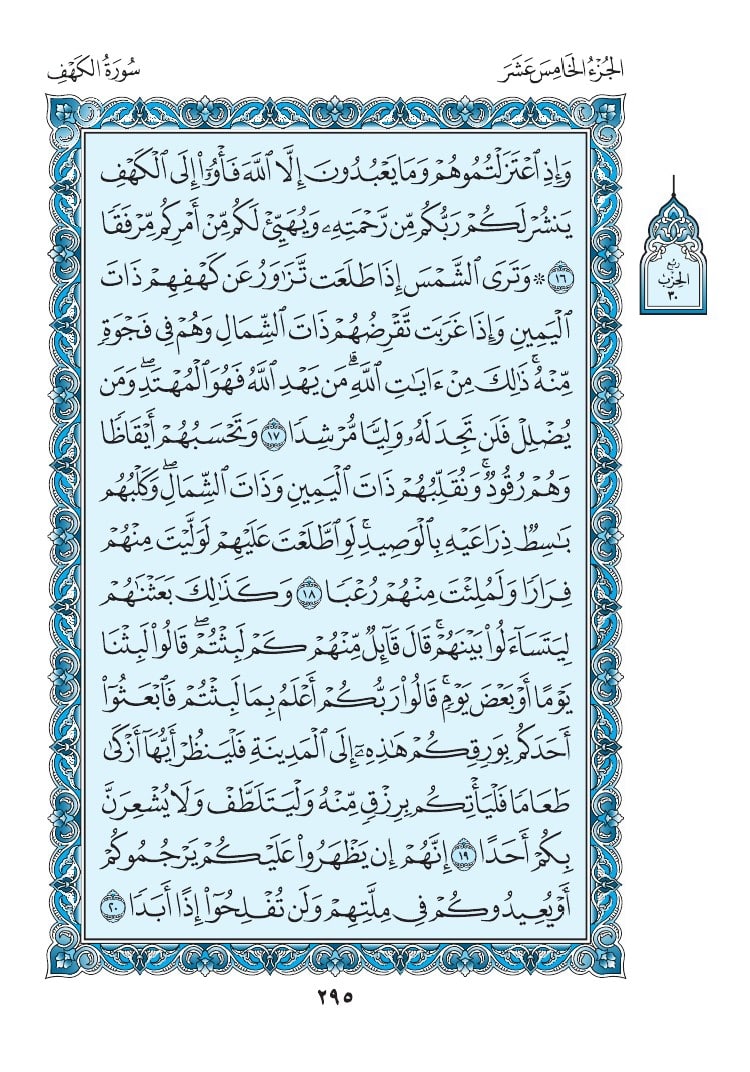 الجُزْءُ الخَامِسَ عَشَرَ
سُورَةُ الكَهْفِ
وَإِذِ ٱعْتَزَلْتُمُوهُمْ وَمَا يَعْبُدُونَ إِلَّا ٱللَّهَ فَأْوُۥٓا۟ إِلَى ٱلْكَهْفِ
يَنشُرْ لَكُمْ رَبُّكُم مِّن رَّحْمَتِهِۦ وَيُهَيِّئْ لَكُم مِّنْ أَمْرِكُم مِّرْفَقًا
١٦ ۞ وَتَرَى ٱلشَّمْسَ إِذَا طَلَعَت تَّزَٰوَرُ عَن كَهْفِهِمْ ذَاتَ
ٱلْيَمِينِ وَإِذَا غَرَبَت تَّقْرِضُهُمْ ذَاتَ ٱلشِّمَالِ وَهُمْ فِى فَجْوَةٍ
مِّنْهُ ۚ ذَٰلِكَ مِنْ ءَايَٰتِ ٱللَّهِ ۗ مَن يَهْدِ ٱللَّهُ فَهُوَ ٱلْمُهْتَدِ ۖ وَمَن
يُضْلِلْ فَلَن تَجِدَ لَهُۥ وَلِيًّا مُّرْشِدًا ١٧ وَتَحْسَبُهُمْ أَيْقَاظًا
وَهُمْ رُقُودٌ ۚ وَنُقَلِّبُهُمْ ذَاتَ ٱلْيَمِينِ وَذَاتَ ٱلشِّمَالِ ۖ وَكَلْبُهُم
بَٰسِطٌ ذِرَاعَيْهِ بِٱلْوَصِيدِ ۚ لَوِ ٱطَّلَعْتَ عَلَيْهِمْ لَوَلَّيْتَ مِنْهُمْ
فِرَارًا وَلَمُلِئْتَ مِنْهُمْ رُعْبًا ١٨ وَكَذَٰلِكَ بَعَثْنَٰهُمْ
لِيَتَسَآءَلُوا۟ بَيْنَهُمْ ۚ قَالَ قَآئِلٌ مِّنْهُمْ كَمْ لَبِثْتُمْ ۖ قَالُوا۟ لَبِثْنَا
يَوْمًا أَوْ بَعْضَ يَوْمٍ ۚ قَالُوا۟ رَبُّكُمْ أَعْلَمُ بِمَا لَبِثْتُمْ فَٱبْعَثُوٓا۟
أَحَدَكُم بِوَرِقِكُمْ هَٰذِهِۦٓ إِلَى ٱلْمَدِينَةِ فَلْيَنظُرْ أَيُّهَآ أَزْكَىٰ
طَعَامًا فَلْيَأْتِكُم بِرِزْقٍ مِّنْهُ وَلْيَتَلَطَّفْ وَلَا يُشْعِرَنَّ
بِكُمْ أَحَدًا ١٩ إِنَّهُمْ إِن يَظْهَرُوا۟ عَلَيْكُمْ يَرْجُمُوكُمْ
أَوْ يُعِيدُوكُمْ فِى مِلَّتِهِمْ وَلَن تُفْلِحُوٓا۟ إِذًا أَبَدًا ٢٠
رُبْعُ
الحِزْبِ
٣٠
٢٩٥